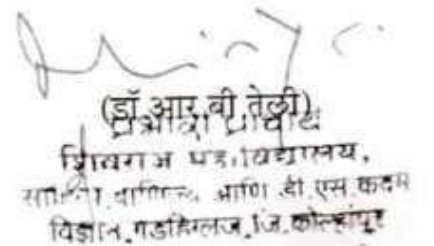 (डॉ आर बी तेली)
प्रभारी प्राचार्य
शिवराज महाविद्यालय,
वाणिज्य आणि डी.एस.कदम
विज्ञान, गडहिंग्लज, जि. कोल्हापूर